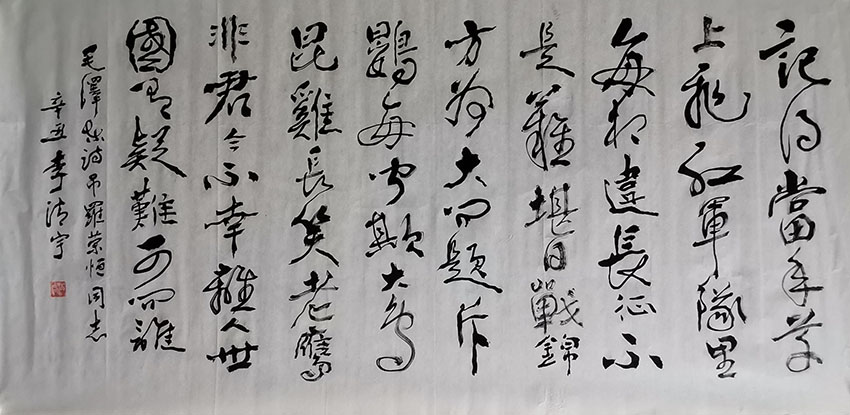 記得當年草
上飛紅軍隊里
每相違長征不
是難堪日戰錦
方为大问題斥
鷃每闻欺大鸟
昆雞長笑老鷹
非君今不幸離人世
國有疑難可问誰
毛澤东诗吊羅荣恒同志
辛丑李清宇